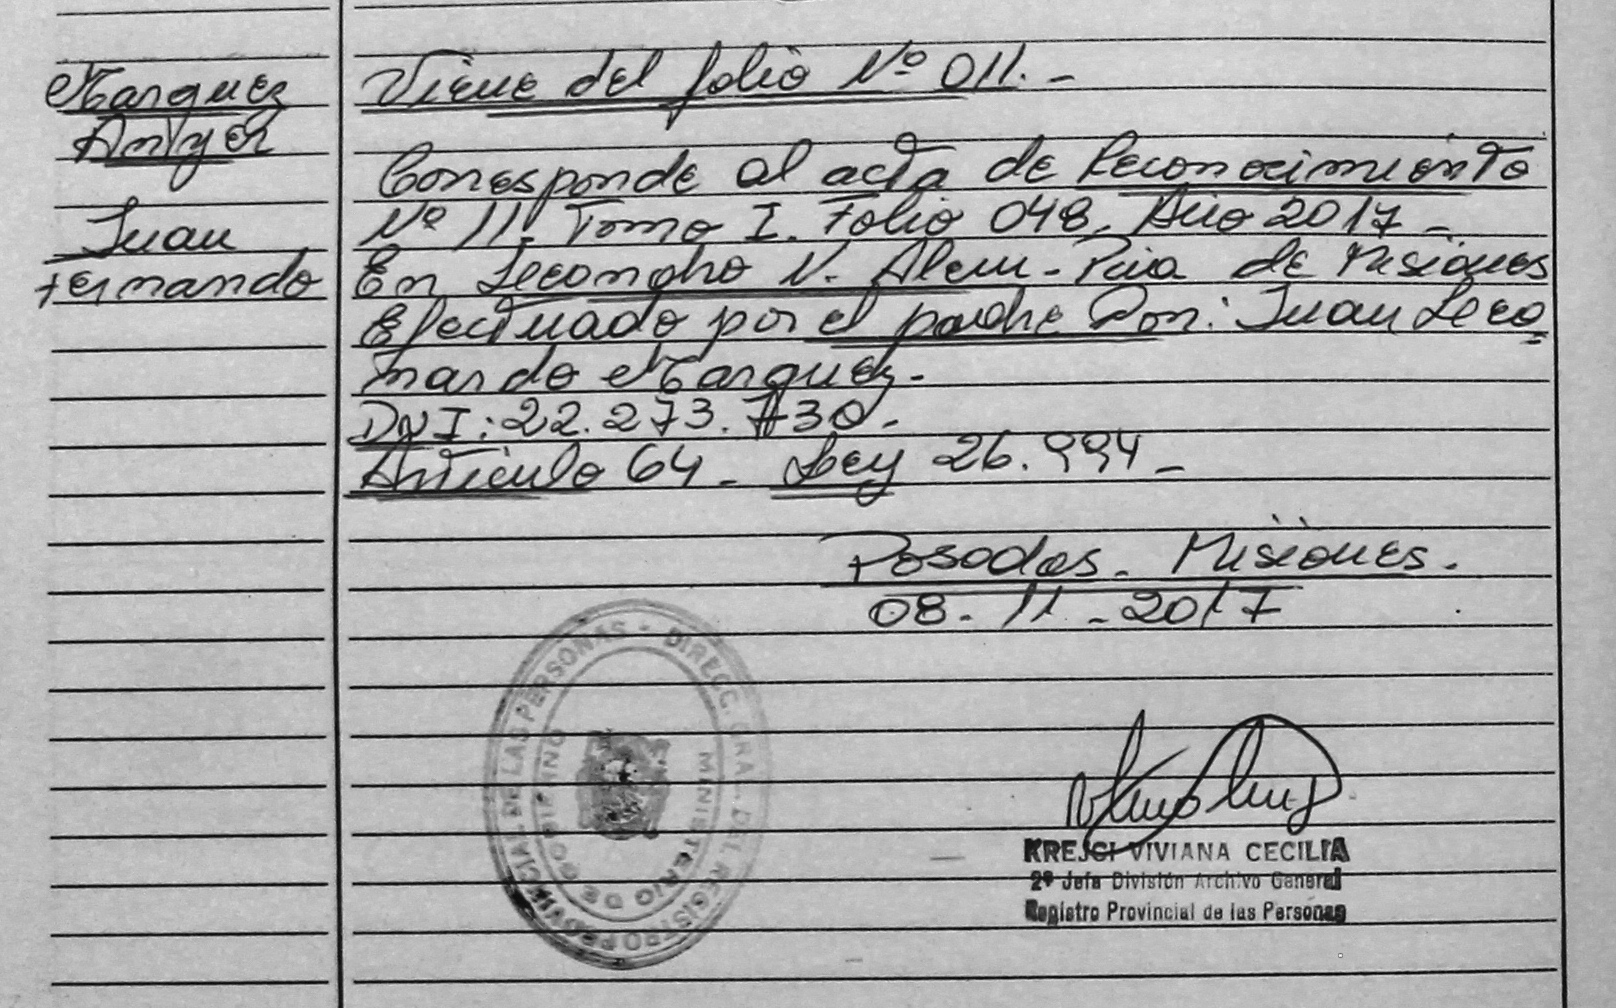 Marquez
Antger
Juan
Fernando
Viene del folio Nº 011.-
Corresponde al acta de Reconocimiento
Nº 11. Tomo I. Folio 048. Año 2017-
En Leandro N. Alem - Pcia de Misiones
Efectuado por el padre Don: Juan Leo
nardo Marquez.
DNI: 22.273.730.
Artículo 64 - Ley 26.994-
Posadas - Misiones.
08 - 11 - 2017
DIRECC. GRAL. DEL REGISTRO PROVINCIAL DE LAS PERSONAS -
MINISTERIO DE GOBIERNO
KREJCI VIVIANA CECILIA
2º Jefa División Archivo General
Registro Provincial de las Personas